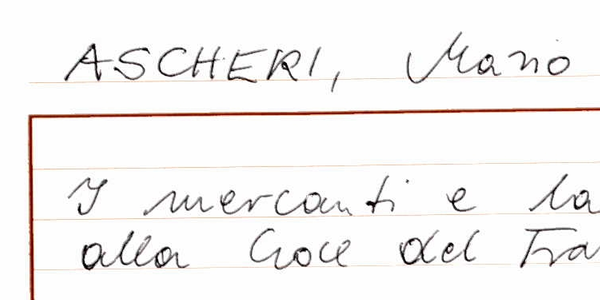 ASCHERI, Mario
I mercanti e la
alla Croce del Tra